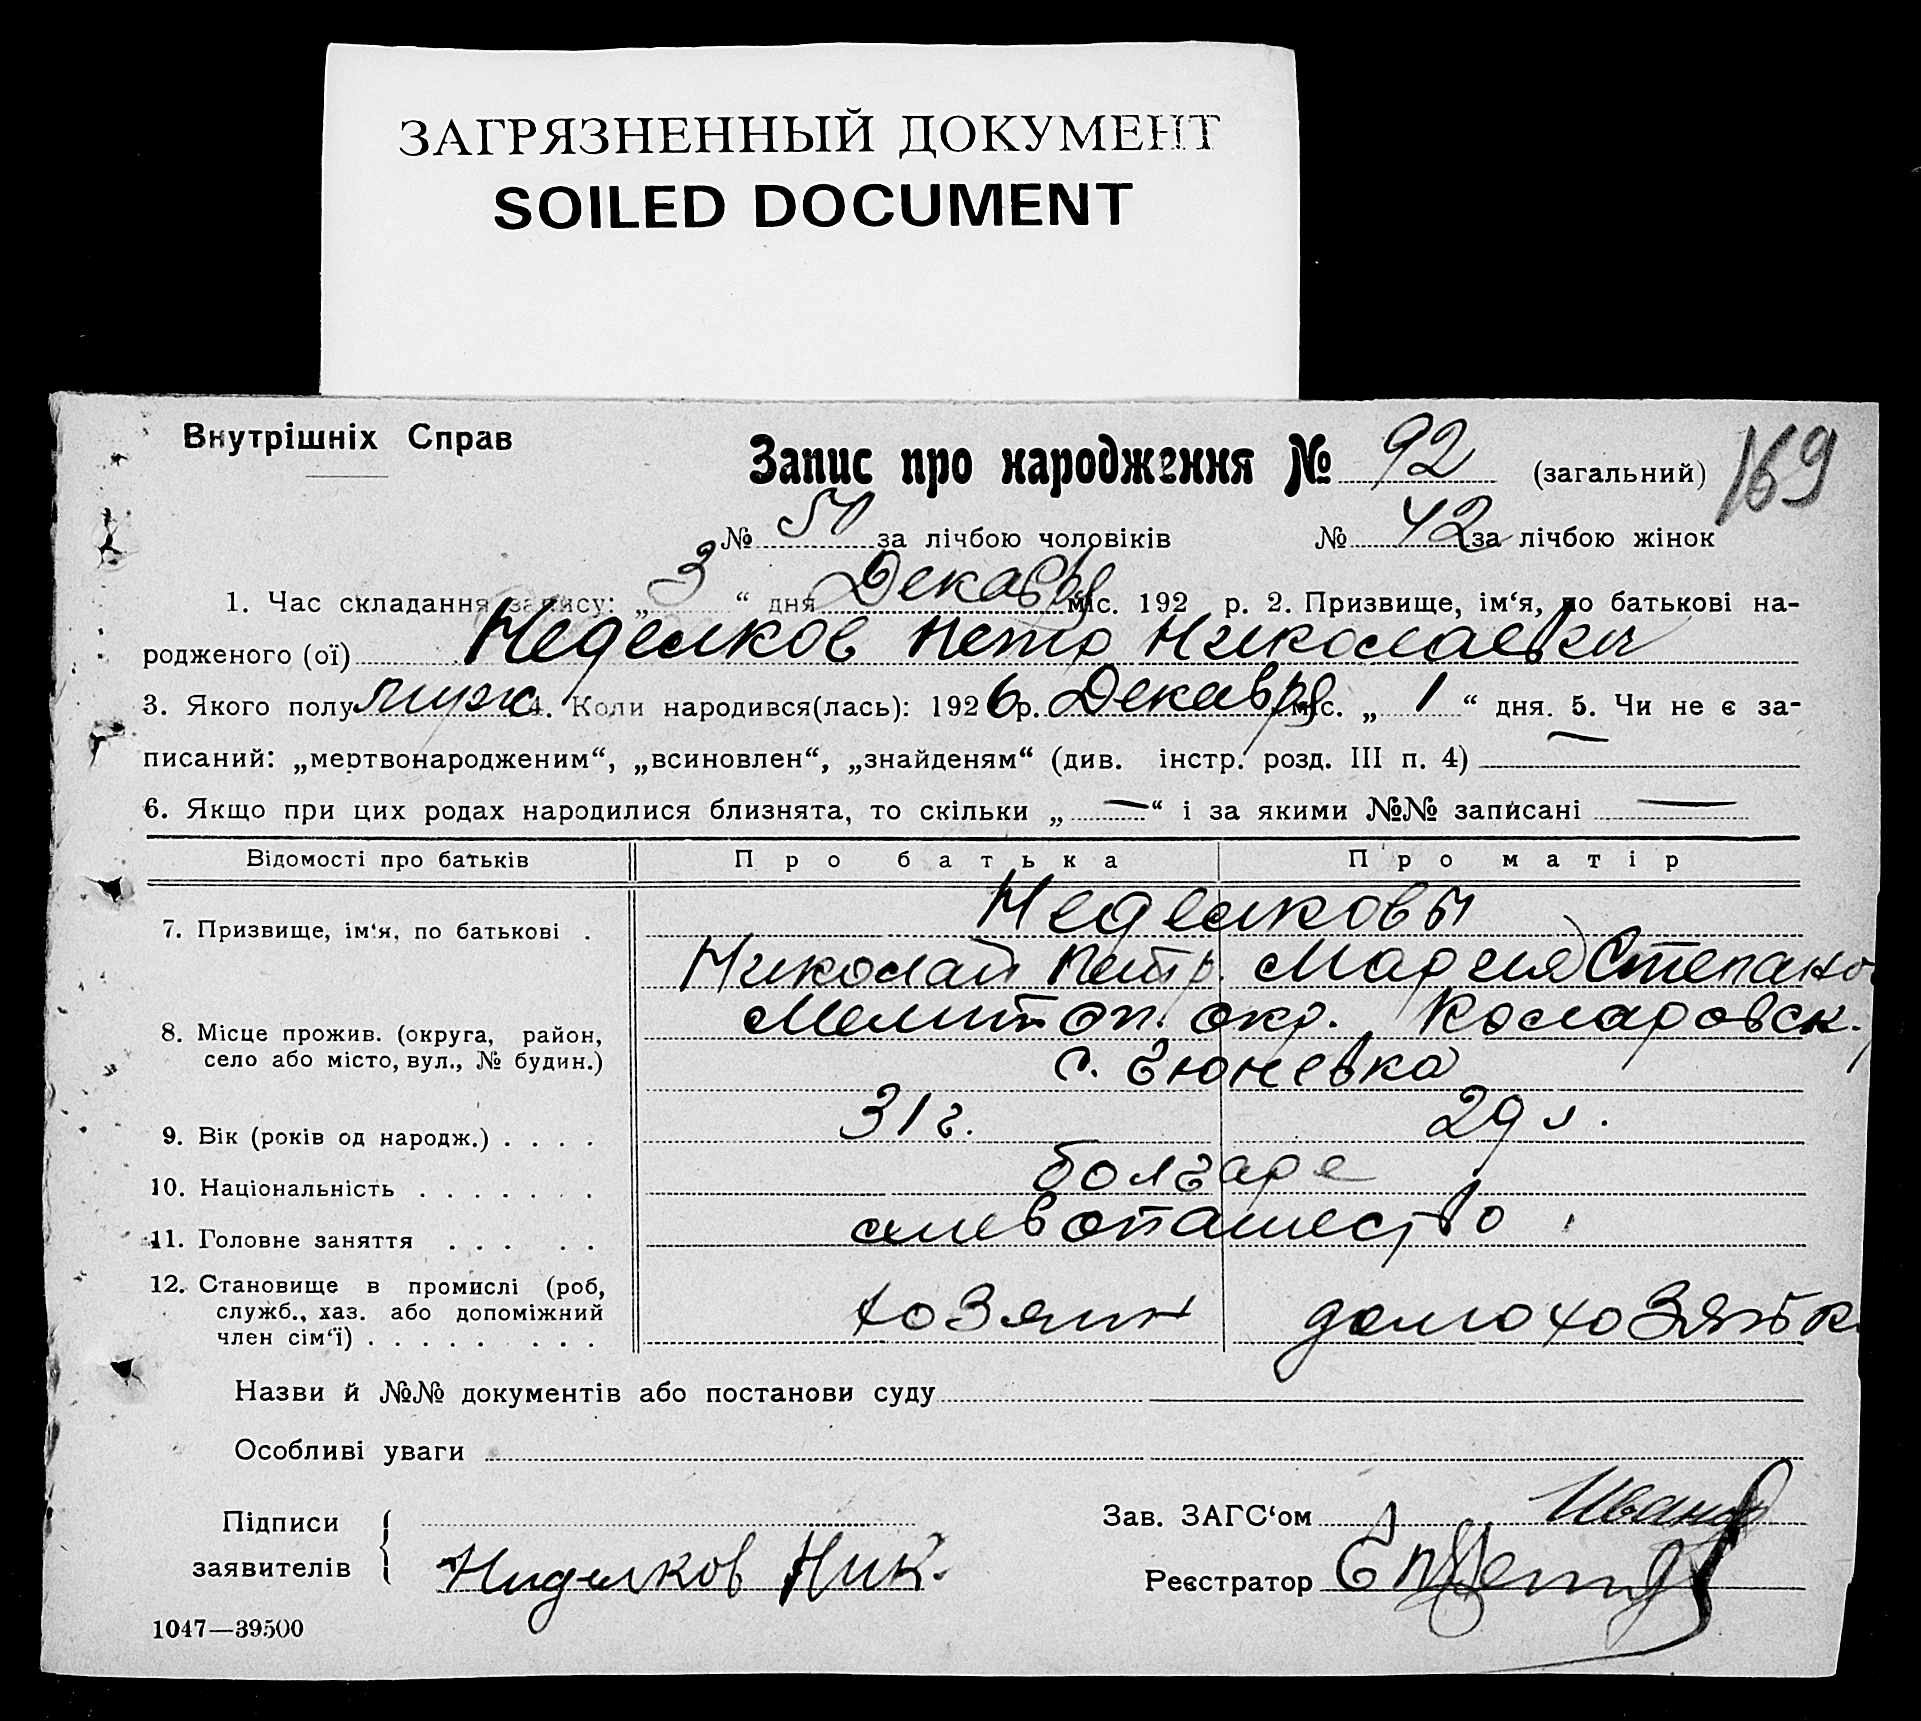 ЗАГРЯЗНЕННЫЙ ДОКУМЕНТ
SOILED DOCUMENT
Внутрішніх Справ
Запис про народження № 92 (загальний) 169
№ 50 за лічбою чоловіків № 42 за лічбою жінок
1. Час складання запису: „ 3 “ дня Декабр міс. 192 р. 2. Призвище, ім‘я, по батькові на-
родженого (ої) Неделков Петр Николаевич
3. Якого полу муж 4. Коли народився(лась): 1926 р. Декабр міс. „ 1 “ дня. 5. Чи не є за-
писаний: „мертвонародженим“, „всиновлен“, „знайденям“ (див. інстр. розд. III п. 4) —
6. Якщо при цих родах народилися близнята, то скільки „ — “ і за якими №№ записані —
Відомості про батьків Про батька Про матір
7. Призвище, ім‘я, по батькові . Неделковы
Николай Петр. Мария Степано
8. Місце прожив. (округа, район, Мелитоп. окр. Коларовск.
село або місто, вул., № будин.) с. Гюневка
9. Вік (років од народж.) . . . . 31 г. 29 л.
10. Національність . . . . . . . болгаре
11. Головне заняття . . . . . хлебопашество
12. Становище в промислі (роб,
служб., хаз. або допоміжний хозяин домохозяйк
член сім‘ї) . . . . . . . .
Назви й №№ документів або постанови суду
Особливі уваги
Підписи Зав. ЗАГС‘ом Иванов
заявителів Ниделков Ник. Реєстратор
1047—39500